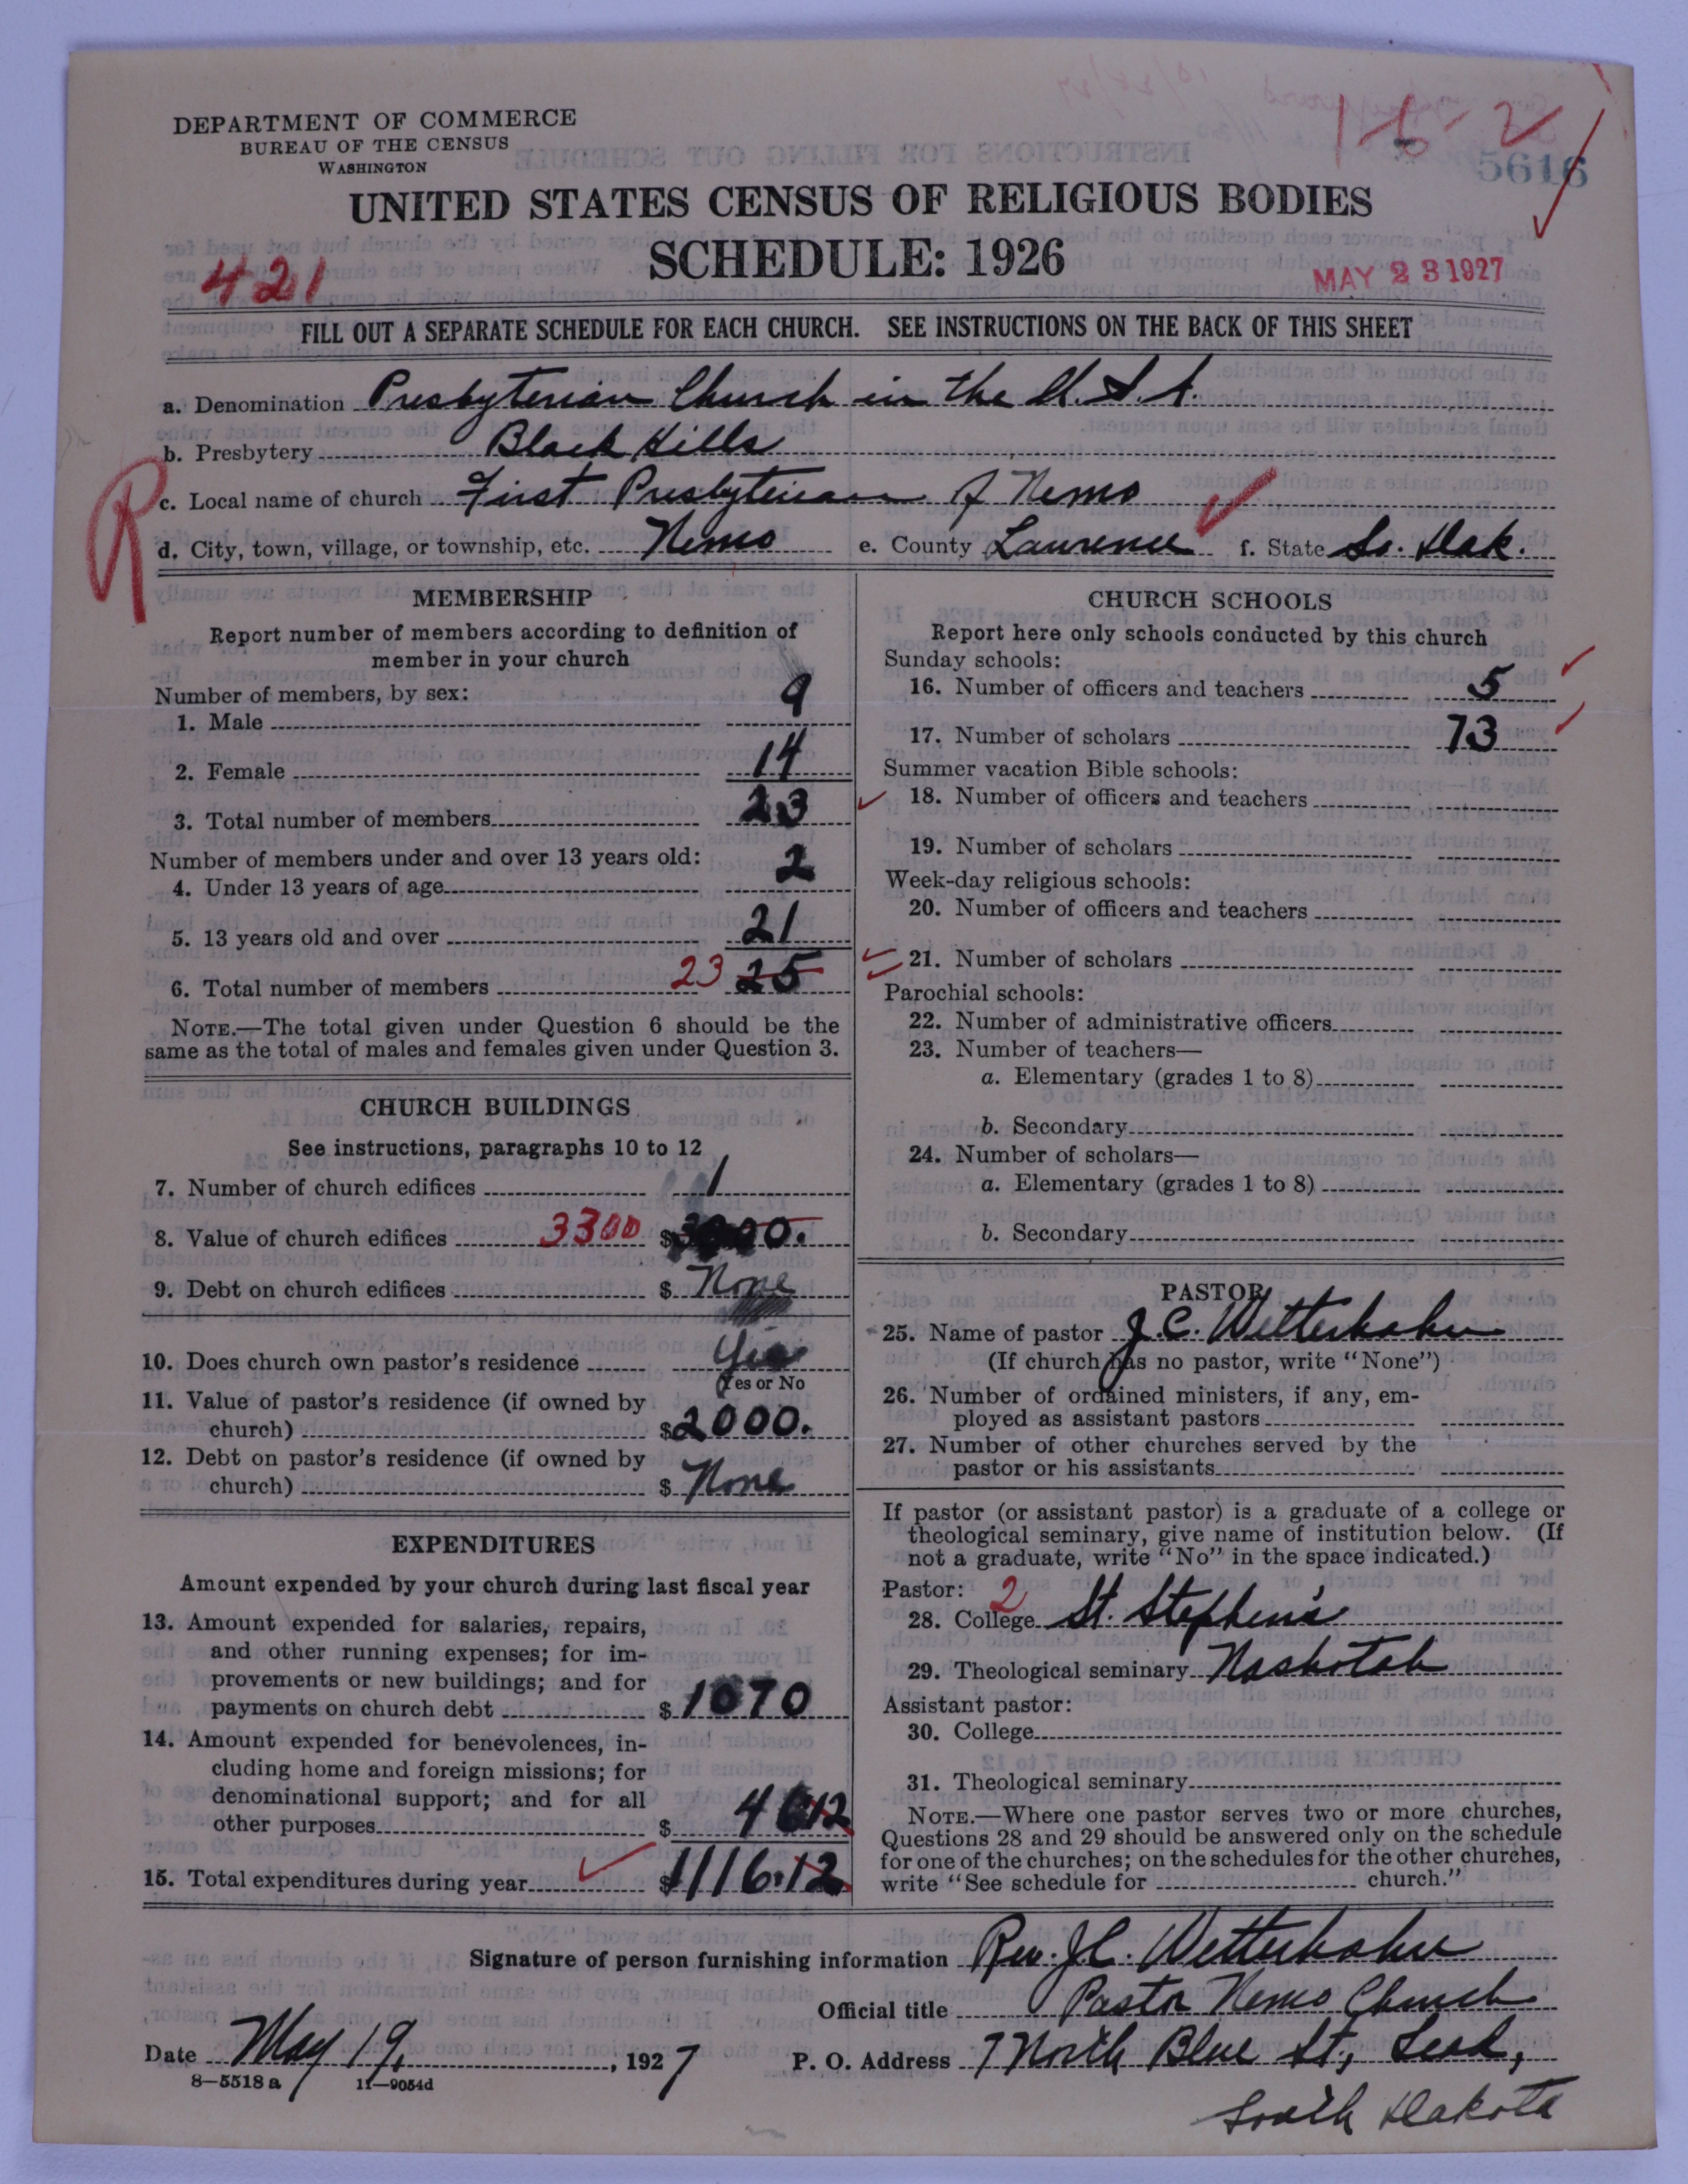 DEPARTMENT OF COMMERCE
BUREAU OF THE CENSUS
WASHINGTON
16-2
5616
UNITED STATES CENSUS OF RELIGIOUS BODIES
SCHEDULE: 1926
421
MAY 23 1927
FILL OUT A SEPARATE SCHEDULE FOR EACH CHURCH. SEE INSTRUCTIONS ON THE BACK OF THIS SHEET
a. Denomination Presbyterian Church in the U.S.A.
b. Presbytery Black Hills
R
c. Local name of church First Presbyterian of Nemo
d. City, town, village, or township, etc. Nemo e. County Lawrence f. State So. Dak.
MEMBERSHIP
Report number of members according to definition of
member in your church
Number of members, by sex:
1. Male 9
2. Female 14
3. Total number of members 23
Number of members under and over 13 years old:
4. Under 13 years of age 2
5. 13 years old and over 21
6. Total number of members 23 25
NOTE.—The total given under Question 6 should be the
same as the total of males and females given under Question 3.
CHURCH BUILDINGS
See instructions, paragraphs 10 to 12
7. Number of church edifices 1
8. Value of church edifices 3300 $
9. Debt on church edifices $ None
10. Does church own pastor's residence Yes
(Yes or No
11. Value of pastor's residence (if owned by
church) $2000.
12. Debt on pastor's residence (if owned by
church) $ None
EXPENDITURES
Amount expended by your church during last fiscal year
13. Amount expended for salaries, repairs,
and other running expenses; for im-
provements or new buildings; and for
payments on church debt $ 1070
14. Amount expended for benevolences, in-
cluding home and foreign missions; for
denominational support; and for all
other purposes $ 4612
15. Total expenditures during year $1116.12
CHURCH SCHOOLS
Report here only schools conducted by this church
Sunday schools:
16. Number of officers and teachers 5
17. Number of scholars 73
Summer vacation Bible schools:
18. Number of officers and teachers
19. Number of scholars
Week-day religious schools:
20. Number of officers and teachers
21. Number of scholars
Parochial schools:
22. Number of administrative officers
23. Number of teachers—
a. Elementary (grades 1 to 8)
b. Secondary
24. Number of scholars—
a. Elementary (grades 1 to 8)
b. Secondary
PASTOR
25. Name of pastor J.C. Wetterhahn
(If church has no pastor, write "None")
26. Number of ordained ministers, if any, em-
ployed as assistant pastors
27. Number of other churches served by the
pastor or his assistants
If pastor (or assistant pastor) is a graduate of a college or
theological seminary, give name of institution below. (If
not a graduate, write "No" in the space indicated.)
Pastor: 2
28. College St. Stephen's
29. Theological seminary Nashotah
Assistant pastor:
30. College
31. Theological seminary
NOTE.—Where one pastor serves two or more churches,
Questions 28 and 29 should be answered only on the schedule
for one of the churches; on the schedules for the other churches,
write "See schedule for church."
Signature of person furnishing information Rev. J.C. Wetterhahn
Official title Pastor Nemo Church
Date May 19, 1927 P. O. Address 7 North Blue St., Lead,
8—5518 a 11—9054d
South Dakota